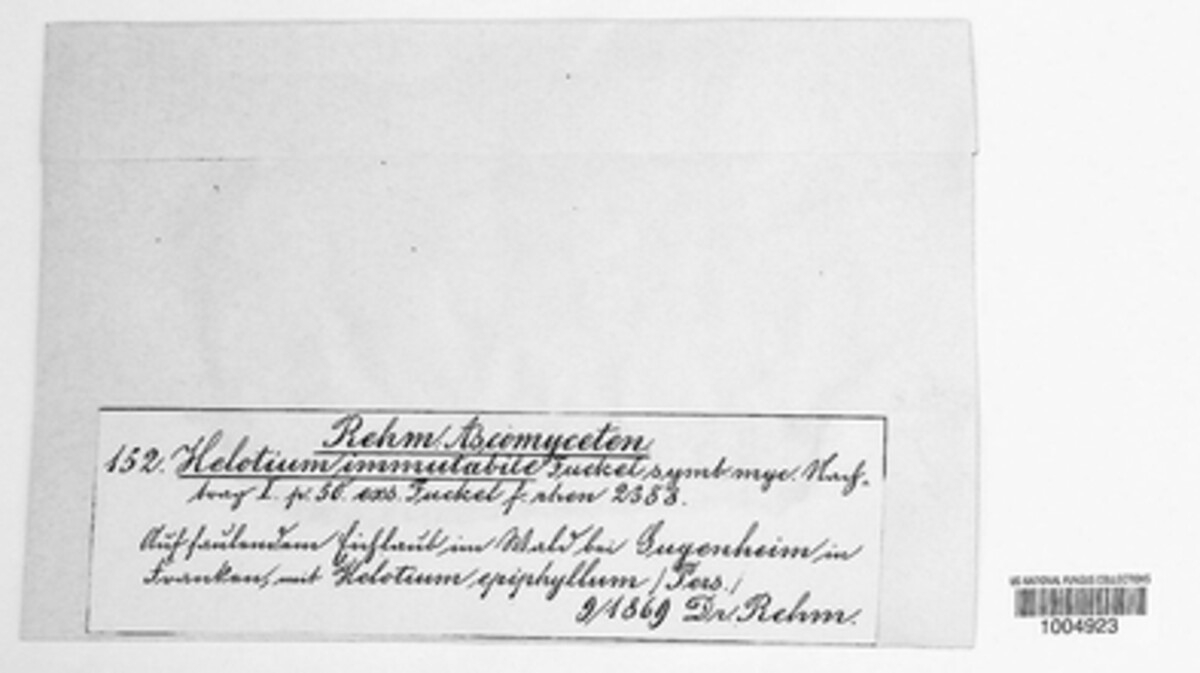 Rehm. Ascomyceten
152. Helotium immutabile Fuckel symb. myc. Nach-
trag I. p. 50. exs. Fuckel f. rhen 2383.
Auf faulendem Eichlaub im Wald bei Gugenheim in
Franken, mit Helotium epiphyllum (Pers.)
9/1869 Dr. Rehm.
US NATIONAL FUNGUS COLLECTIONS
1004923